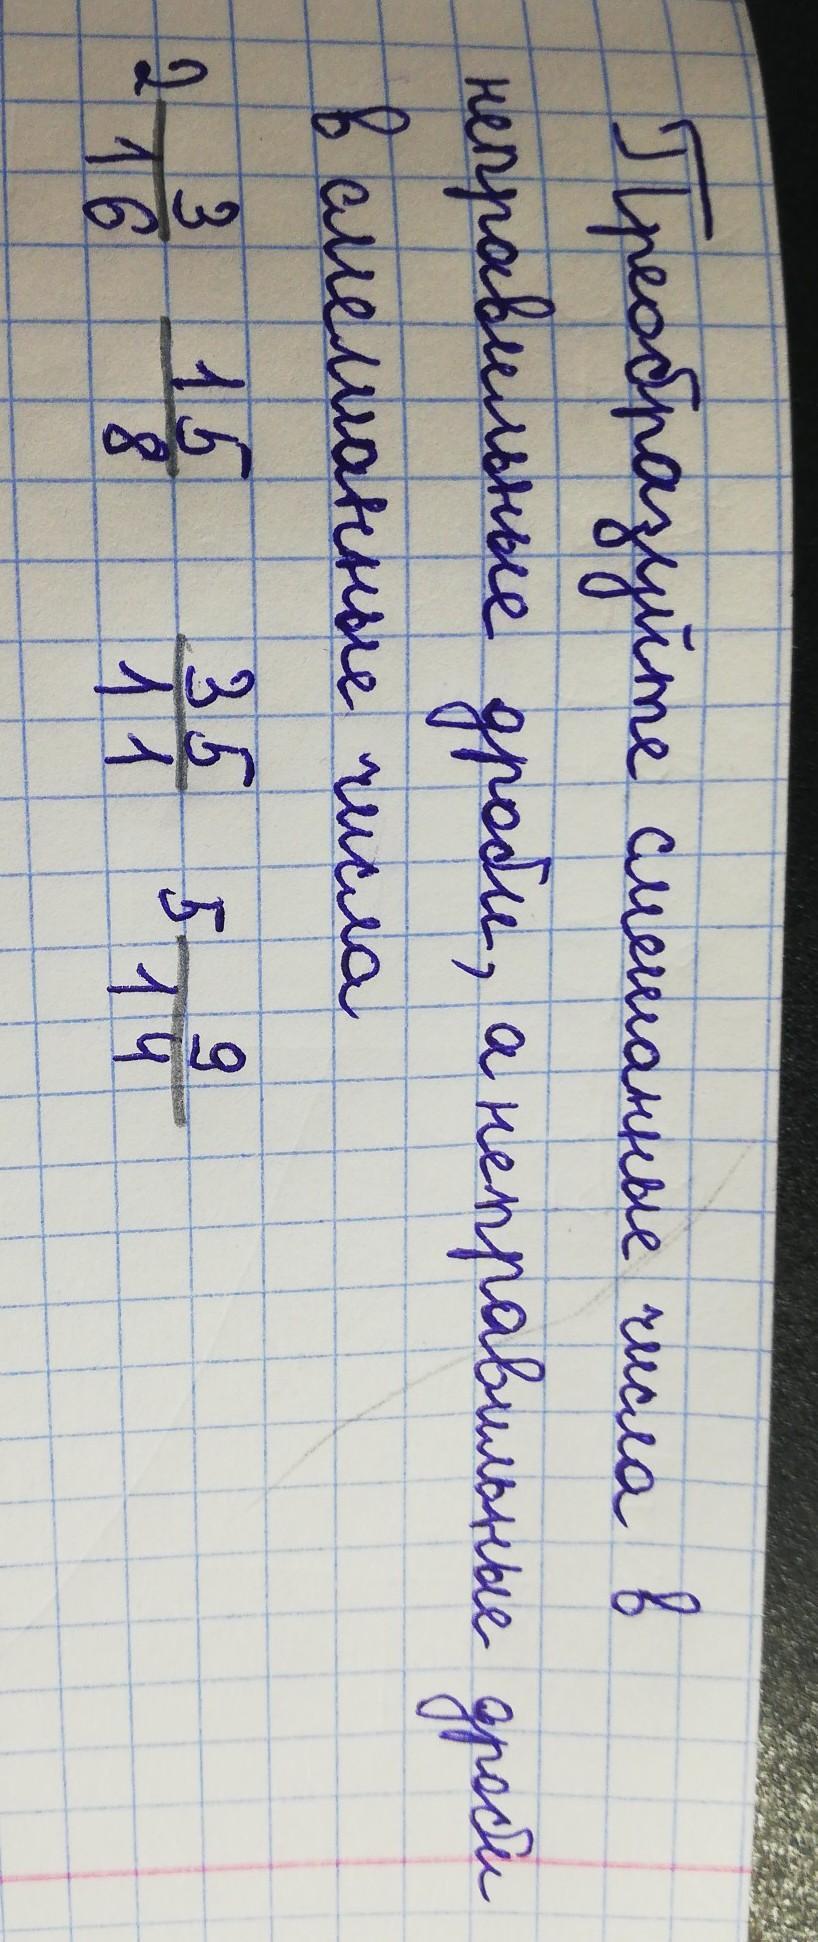 Преобразуйте смешанные числа в
неправильные дроби, а неправильные дроби
в смешанные числа
2 3/16 15/8 35/11 5 9/14